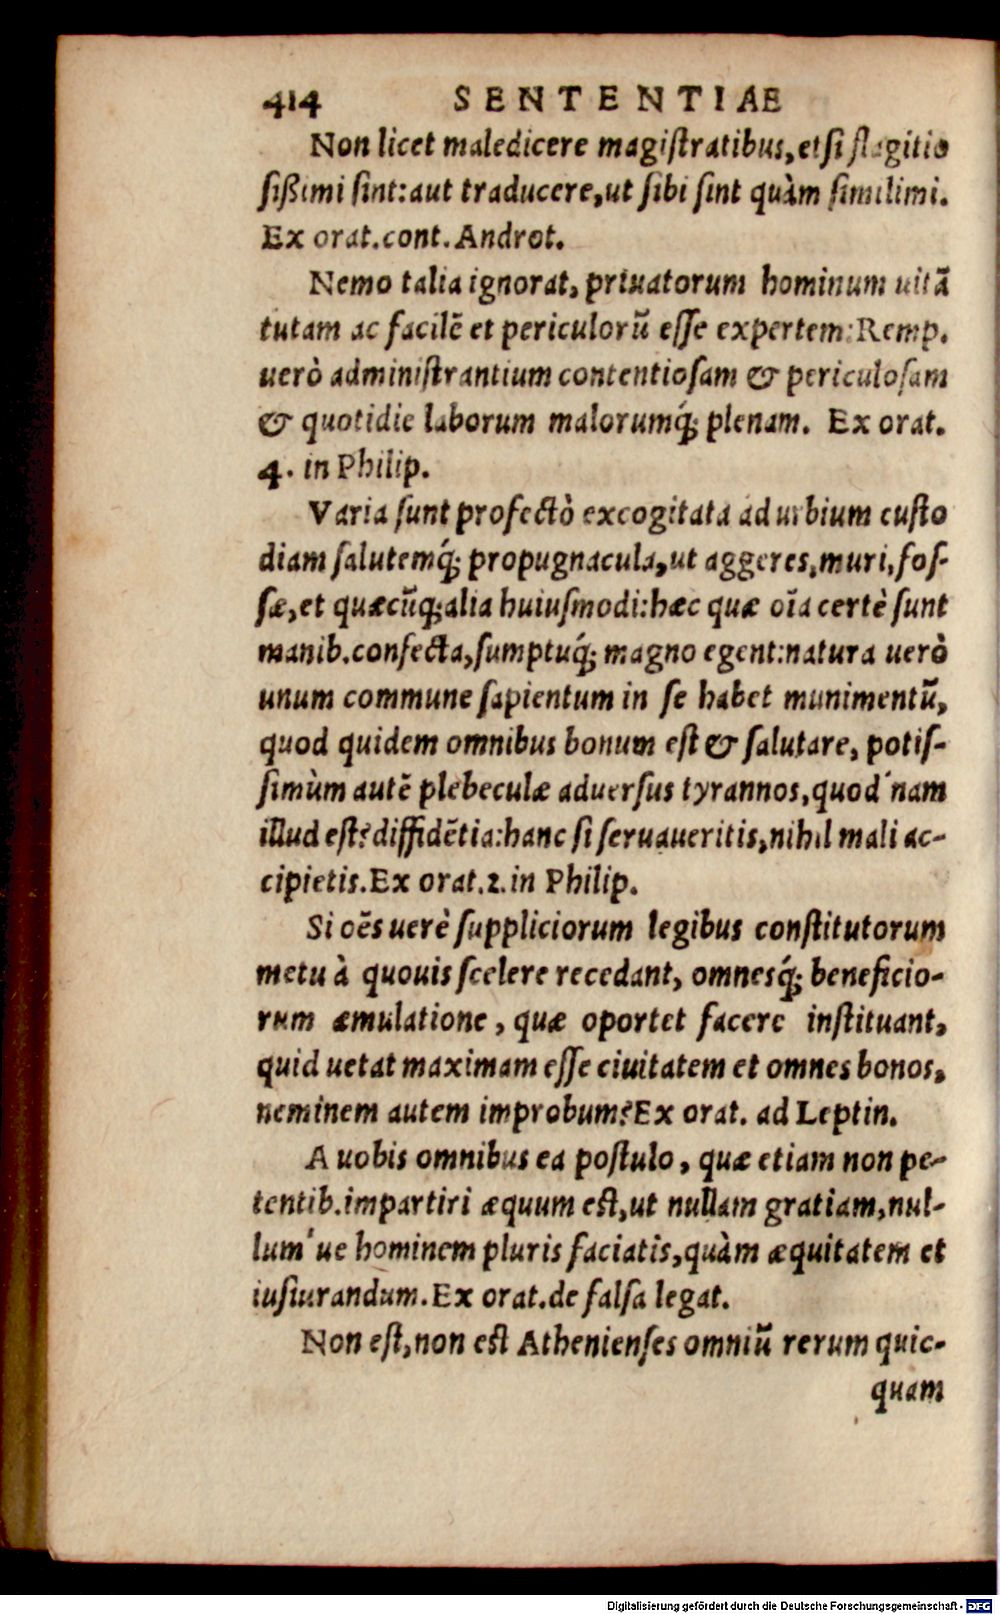 414 SENTENTIAE
Non licet maledicere magiſtratibus, etſi flagitio
ſißimi ſint: aut traducere, ut ſibi ſint quàm ſimilimi.
Ex orat. cont. Androt.
Nemo talia ignorat, priuatorum hominum uitā
tutam ac facilē et periculorū eſſe expertem: Remp.
uerò adminiſtrantium contentioſam & periculoſam
& quotidie laborum malorumq́; plenam. Ex orat.
4. in Philip.
Varia ſunt profectò excogitata ad urbium cuſto
diam ſalutemq́; propugnacula, ut aggeres, muri, foſ-
ſæ, et quæcūq; alia huiuſmodi: hæc quæ oīa certè ſunt
manib. confecta, ſumptuq́; magno egent: natura uerò
unum commune ſapientum in ſe habet munimentū,
quod quidem omnibus bonum eſt & ſalutare, potiſ-
ſimùm autē plebeculæ aduerſus tyrannos, quod'nam
illud eſt? diffidētia: hanc ſi ſeruaueritis, nihil mali ac-
cipietis. Ex orat. 2. in Philip.
Si oēs uerè ſuppliciorum legibus conſtitutorum
metu à quouis ſcelere recedant, omnesq́; beneficio-
rum æmulatione, quæ oportet facere inſtituant,
quid uetat maximam eſſe ciuitatem et omnes bonos,
neminem autem improbum? Ex orat. ad Leptin.
A uobis omnibus ea poſtulo, quæ etiam non pe-
tentib. impartiri æquum eſt, ut nullam gratiam, nul-
lum'ue hominem pluris faciatis, quàm æquitatem et
iuſiurandum. Ex orat. de falſa legat.
Non eſt, non eſt Athenienſes omniū rerum quic-
quam
Digitalisierung gefördert durch die Deutsche Forschungsgemeinschaft - DFG